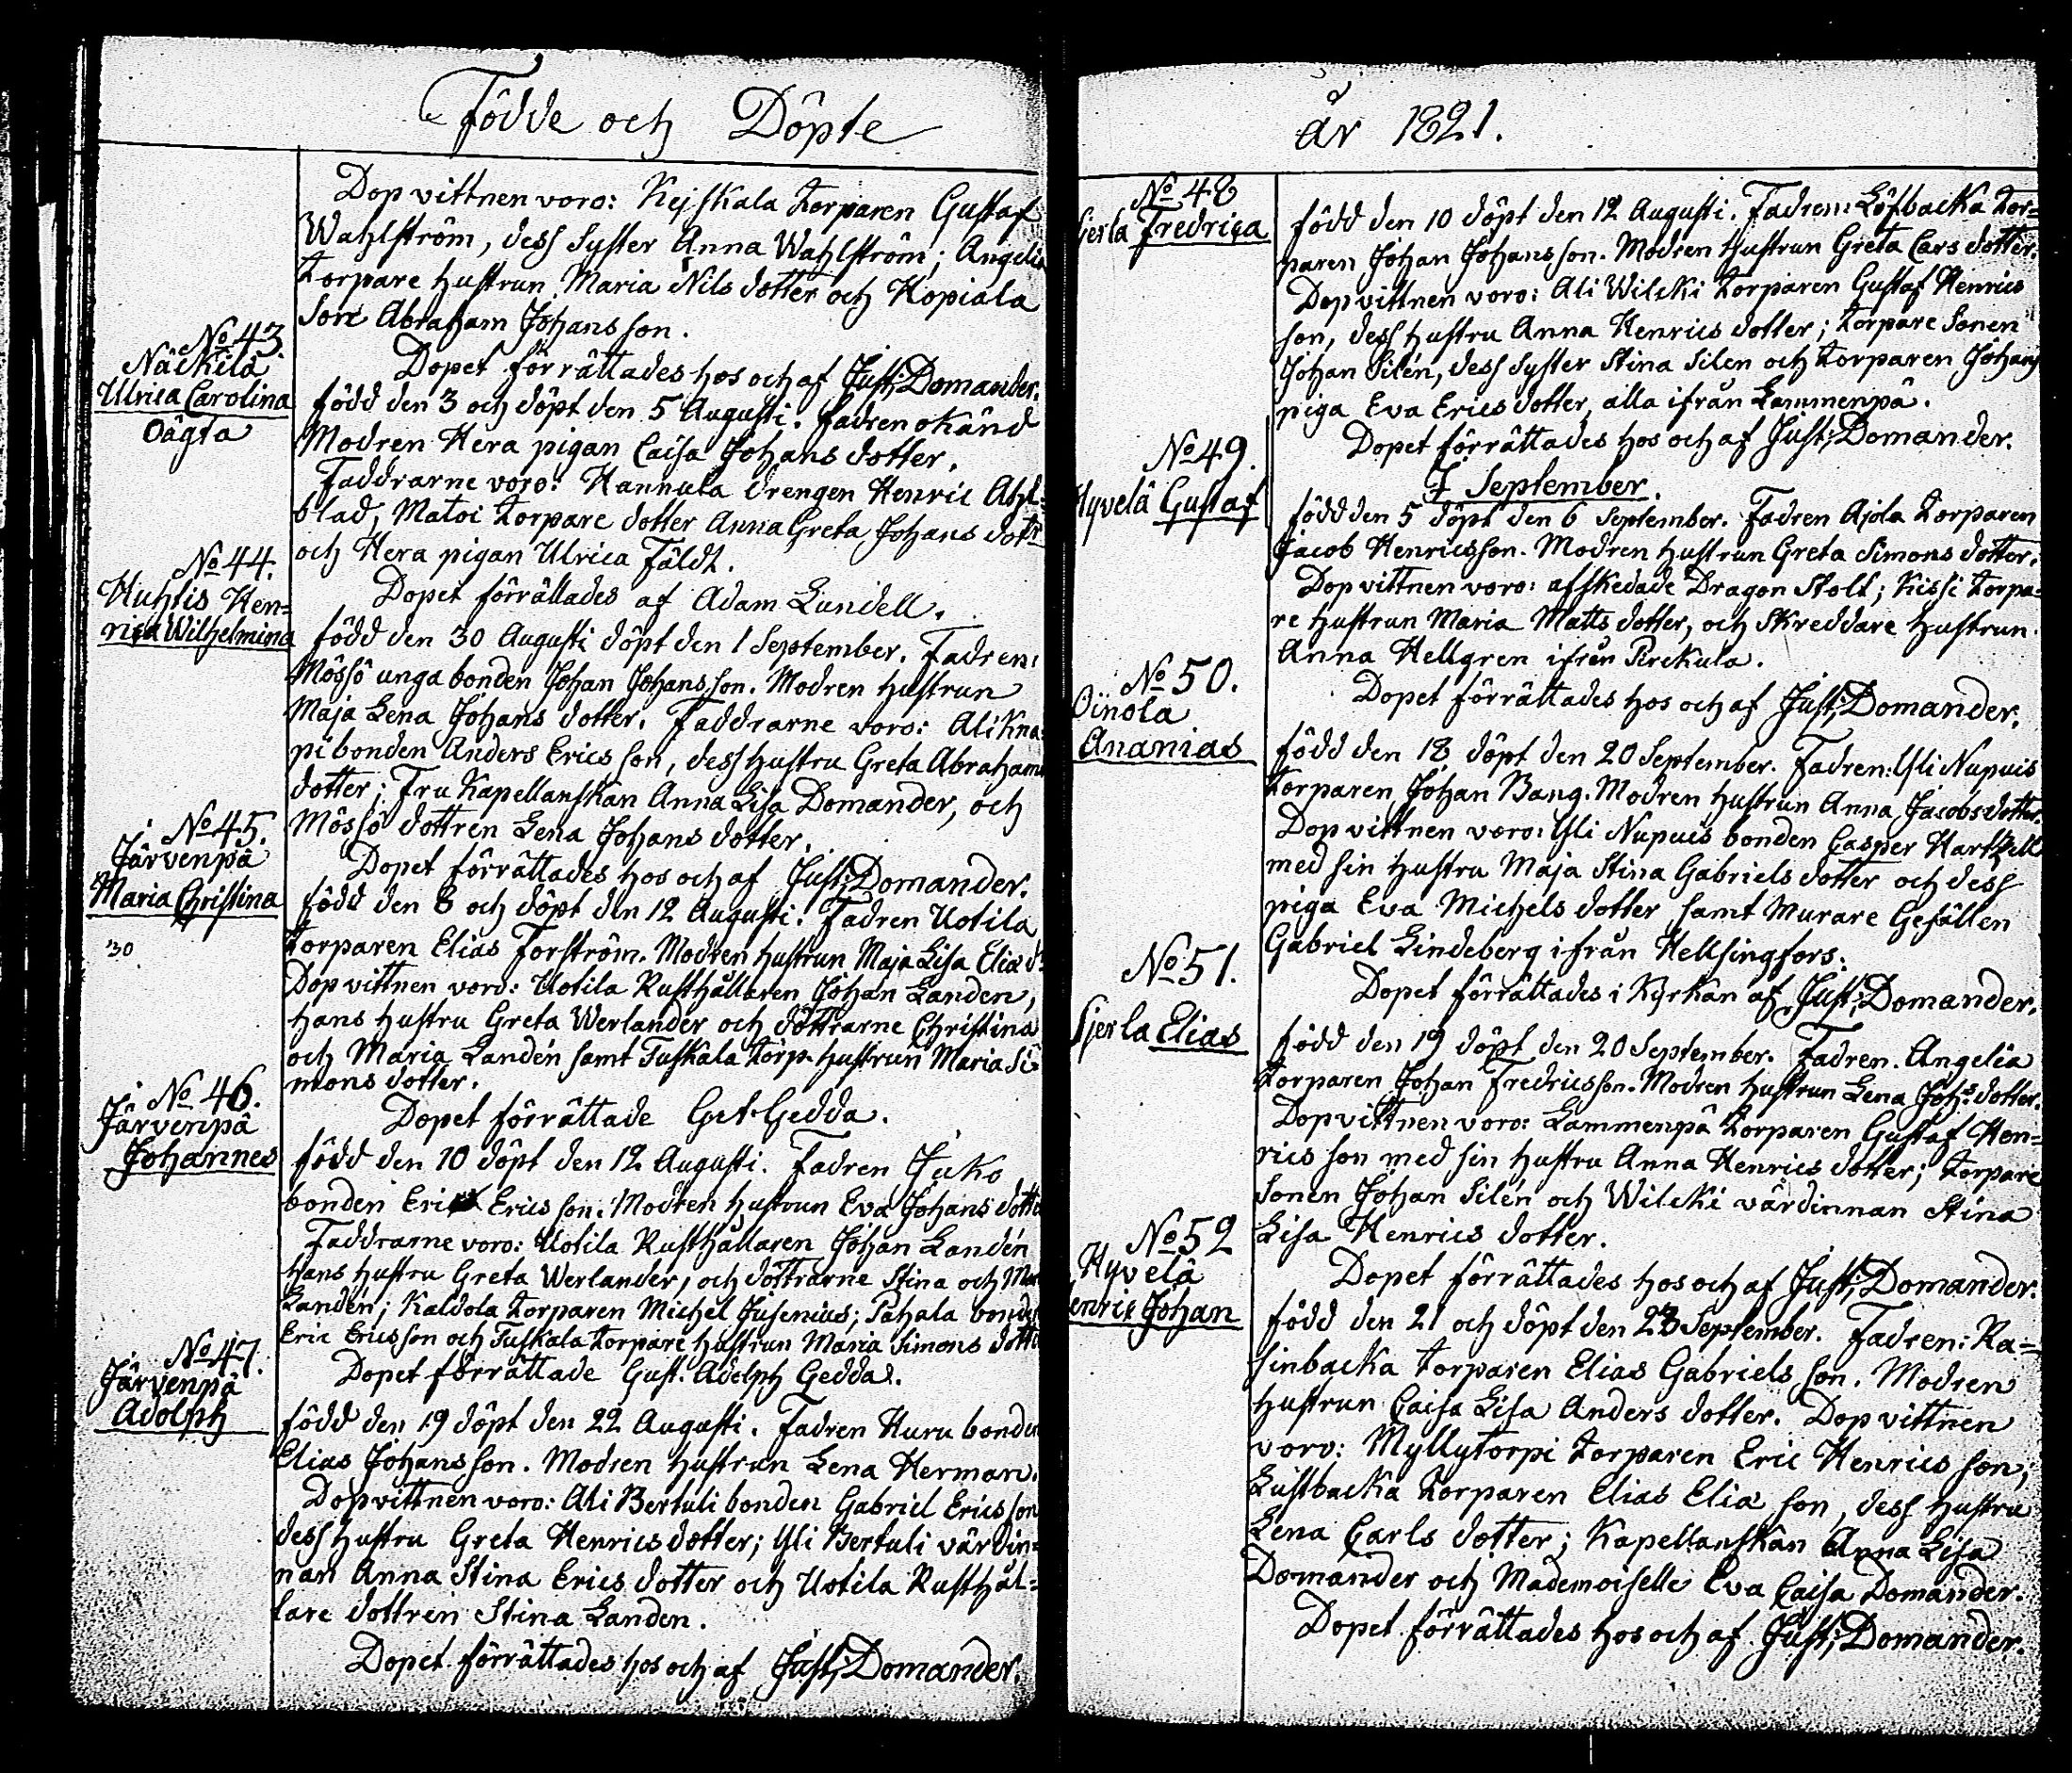 Födde och Döpte
Dop vittnen voro: Kejskala Torparen Gustaf
Wahlström, dess Syster Anna Wahlström; Angelia
Torpare hustrun Maria Nils dotter och Kopiala
Son Abraham Johans son.
Dopet förrättades hos och af Just: Domander.
No 43.
Näckilä
Ulrica Carolina
Oägta
född den 3 och döpt den 5 Augusti. fadren okänd
Modren Hera pigan Caisa Johans dotter.
Faddrarne voro: Hannula drengen Henric Ahl=
blad, Matoi Torpare dotter Anna Greta Johans dotr
och Hera pigan Ulrica Fäldt.
Dopet förrättades af Adam Lundell.
No 44.
Huhtis Hen=
rica Wilhelmina
född den 30 Augusti döpt den 1 September. Fadren:
Mössö unga bonden Johan Johans son. Modren hustrun
Maja Lena Johans dotter. Faddrarne voro: Ali Kna=
pi bonden Anders Erics son, dess hustru Greta Abrahams
dotter; Fru Kapellanskan Anna Lisa Domander, och
Mössö dottren Lena Johans dotter.
Dopet förrättades hos och af Just: Domander.
No 45.
Järvenpä
Maria Christina
30
född den 8 och döpt den 12 Augusti. Fadren Uotila
Torparen Elias Forström. Modren hustrun Maja Lisa Elia d:
Dop vittnen voro: Uotila Rusthållaren Johan Landen,
hans hustru Greta Werlander och döttrarne Christina
och Maria Landén samt Tuskala Torp. hustrun Maria Si=
mons dotter.
Dopet förrättade Gst Gedda.
No 46.
Järvenpä
Johannes
född den 10 döpt den 12 Augusti. Fadren Juko
bonden Eric Erics son. Modren hustrun Eva Johans dotter
Faddrarne voro: Uotila Rusthållaren Johan Landén
hans hustru Greta Werlander, och döttrarne Stina och
Landén; Kaldola Torparen Michel Jusenius; Pahala bonden
Eric Erics son och Tuskala Torpare hustrun Maria Simons dotter
Dopet förrättade Gust. Adolph Gedda.
No 47.
Järvenpä
Adolph
född den 19 döpt den 22 Augusti. Fadren Huru bonden
Elias Johans son. Modren hustrun Lena Herman.
Dopvittnen voro: Ali Bertuli bonden Gabriel Erics son
dess hustru Greta Henrics dotter; Yli Bertuli värdin=
nan Anna Stina Erics dotter och Uotila Rusthål=
lare dottren Stina Landen.
Dopet förrättades hos och af Just: Domander.
år 1821.
No 48
Gerla Fredrica
född den 10 döpt den 12 Augusti. Fadren: Löfbacka Tor=
paren Johan Johans son. Modren Hustrun Greta Cars dotter.
Dop vittnen voro: Ali Wilcki Torparen Gustaf Henrics
son, dess hustru Anna Henrics dotter; Torpare Sonen
Johan Silén, dess Syster Stina Silen och Torparen Johans
piga Eva Erics dotter, alla ifrån Lammenpä.
Dopet förrättades hos och af Just: Domander.
I September.
No 49.
Hyvelä Gustaf
född den 5 döpt den 6 September. Fadren Ajola Torparen
Jacob Henricsson. Modren hustrun Greta Simons dotter.
Dop vittnen voro: afskedade Dragon Stolt; Kissi Torpa=
re hustrun Maria Matts dotter, och Skreddare hustrun
Anna Hellgren ifrån Pirckula.
Dopet förrättades hos och af Just: Domander.
No 50.
Öinola
Ananias
född den 18 döpt den 20 September. Fadren: Yli Nupuis
Torparen Johan Bang. Modren hustrun Anna Jacobs dotter
Dop vittnen voro: Yli Nupuis bonden Casper Hartzell
med sin hustru Maja Stina Gabriels dotter och dess
piga Eva Michels dotter samt Murare Gesällen
Gabriel Lindeberg ifrån Hellsingfors.
Dopet förrättades i Kyrkan af Just: Domander.
No 51.
Gjerla Elias
född den 19 döpt den 20 September. Fadren. Angelia
Torparen Johan Fredricsson. Modren hustrun Lena Johs dotter.
Dopvittnen voro: Lammenpä Torparen Gustaf Hen=
rics son med sin hustru Anna Henrics dotter; Torpare
Sonen Johan Silén och Wilcki värdinnan Stina
Lisa Henrics dotter.
Dopet förrättades hos och af Just: Domander.
No 52
Hyvelä
enric Johan
född den 21 och döpt den 23 September. Fadren: Ra=
sinbacka Torparen Elias Gabriels son. Modren
hustrun Caisa Lisa Anders dotter. Dop vittnen
voro: Myllytorpi Torparen Eric Henrics son;
Lustbacka Torparen Elias Elia son, dess hustru
Lena Carls dotter; Kapellanskan Anna Lisa
Domander och Mademoiselle Eva Caisa Domander.
Dopet förrättades hos och af Just: Domander.